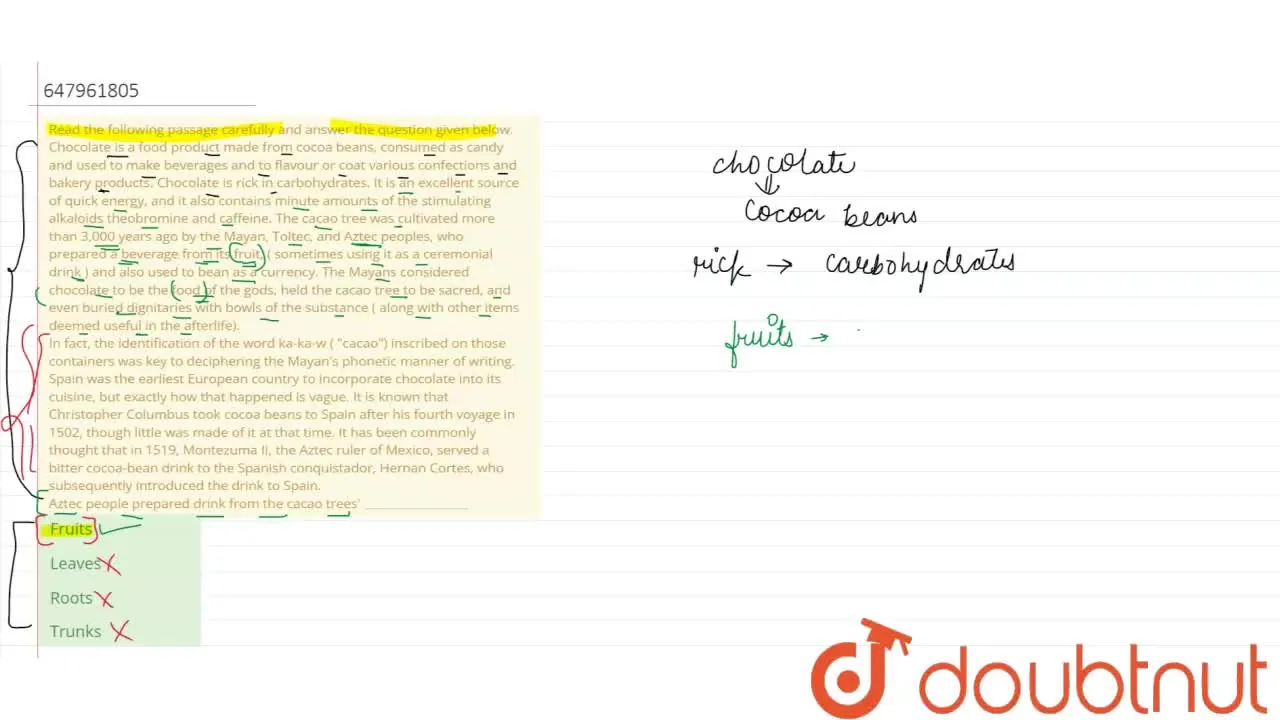 647961805
Read the following passage carefully and answer the question given below.
Chocolate is a food product made from cocoa beans, consumed as candy
and used to make beverages and to flavour or coat various confections and
bakery products. Chocolate is rich in carbohydrates. It is an excellent source
of quick energy, and it also contains minute amounts of the stimulating
alkaloids theobromine and caffeine. The cacao tree was cultivated more
than 3,000 years ago by the Mayan, Toltec, and Aztec peoples, who
prepared a beverage from its fruit, ( sometimes using it as a ceremonial
drink ) and also used to bean as a currency. The Mayans considered
chocolate to be the food of the gods, held the cacao tree to be sacred, and
even buried dignitaries with bowls of the substance ( along with other items
deemed useful in the afterlife).
In fact, the identification of the word ka-ka-w ( "cacao") inscribed on those
containers was key to deciphering the Mayan's phonetic manner of writing.
Spain was the earliest European country to incorporate chocolate into its
cuisine, but exactly how that happened is vague. It is known that
Christopher Columbus took cocoa beans to Spain after his fourth voyage in
1502, though little was made of it at that time. It has been commonly
thought that in 1519, Montezuma Ii, the Aztec ruler of Mexico, served a
bitter cocoa-bean drink to the Spanish conquistador, Hernan Cortes, who
subsequently introduced the drink to Spain.
Aztec people prepared drink from the cacao trees' ____________
Fruits
Leaves
Roots
Trunks
chocolate
cocoa beans
rick → carbohydrates
fruits →
doubtnut